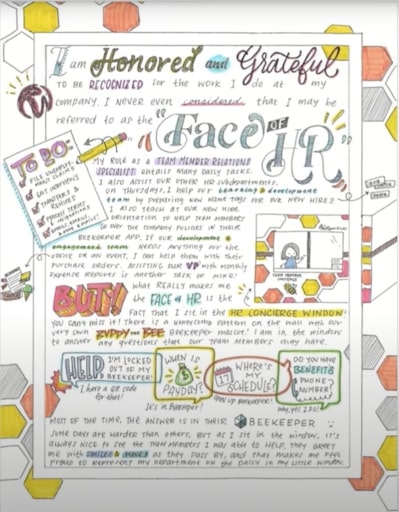 I am Honored and Grateful
TO BE RECOGNIZED for the WORK I DO at MY
COMPANY. I NEVER EVEN considered that I may be
referred to as the "Face OF HR"
TO DO:
FILE UNEMPLOYMENT CLAIMS
MY ROLE as a TEAM MEMBER RELATIONS
SPECIALIST ENTAILS MANY DAILY TASKS.
I ALSO ASSIST OUR OTHER HR SUBDEPARTMENTS.
ON THURSDAYS, I HELP OUR learning & development
team BY PREPARING NEW NAME TAGS FOR OUR NEW HIRES.
I ALSO TEACH AT OUR NEW HIRE
ORIENTATION TO HELP TEAM MEMBERS
COMPANY POLICIES IN THEIR
BEEKEEPER APP. IF OUR development &
engagement team NEEDS ANYTHING FOR THE
OFFICE OR AN EVENT, I CAN HELP THEM WITH THEIR
PURCHASE ORDERS. ASSISTING OUR VP WITH MONTHLY
EXPENSE REPORTS IS ANOTHER TASK OF MINE!
BUT! WHAT REALLY MAKES ME
the FACE OF HR IS the
FACT THAT I SIT IN THE HR CONCIERGE WINDOW!
YOU CAN'T MISS IT! THERE IS A HONEYCOMB PATTERN ON THE WALL WITH OUR
VERY OWN BUDDY the BEE BEEKEEPER MASCOT! I AM IN THE WINDOW
TO ANSWER ANY QUESTIONS THAT OUR TEAM MEMBERS MAY HAVE.
HELP I'M LOCKED OUT OF MY BEEKEEPER!
I have a QR code for that!
WHEN IS PAYDAY?
It's in Beekeeper!
WHERE'S MY SCHEDULE?
OPEN UP BEEKEEPER!
DO YOU HAVE BENEFITS PHONE NUMBER?
Why, yes I do!
MOST OF THE TIME, THE ANSWER IS IN THEIR BEEKEEPER
SOME DAYS ARE HARDER THAN OTHERS, BUT AS I SIT IN THE WINDOW, IT'S
ALWAYS NICE TO SEE THE TEAM MEMBERS I WAS ABLE TO HELP. THEY GREET
ME WITH SMILES & WAVES AS THEY PASS BY, AND THAT MAKES ME FEEL
PROUD TO REPRESENT MY DEPARTMENT ON THE DAILY IN MY LITTLE WINDOW